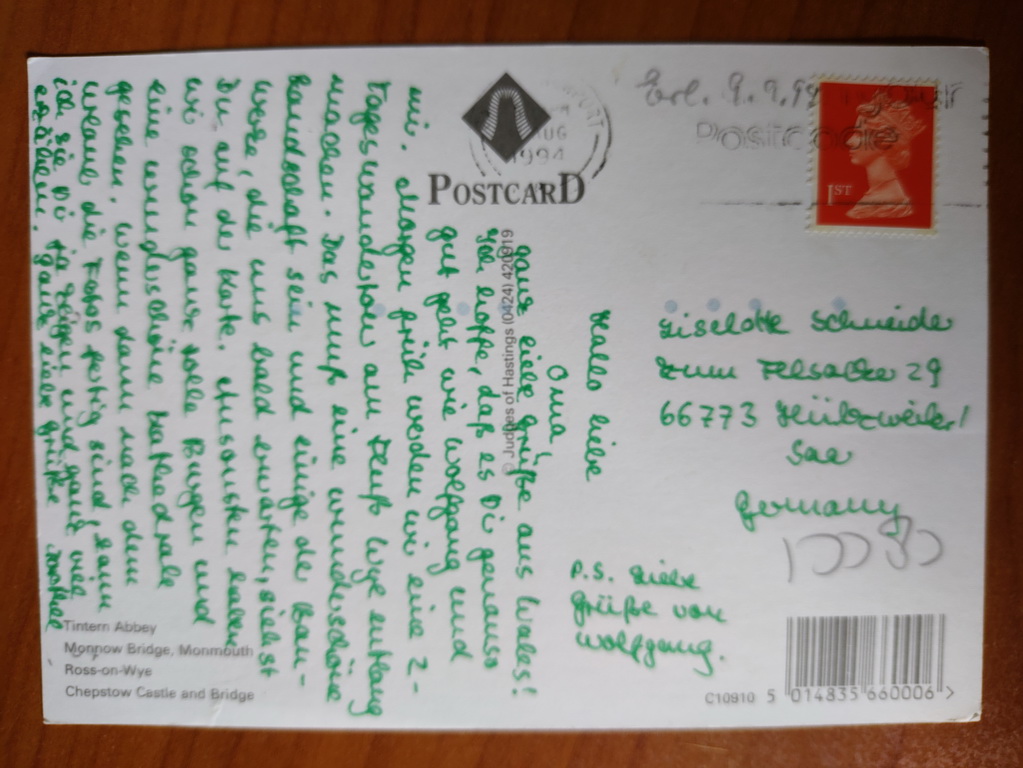 POSTCARD
AUG
1994
Erl. 9.9.94
Postcode
1ST
© Judges of Hastings (0424) 420919
Hallo liebe
Oma!
ganz liebe Grüße aus Wales!
Ich hoffe, daß es Dir genauso
gut geht wie Wolfgang und
mir. Morgen früh werden wir eine 2-
Tageswandertour am Fluß Wye entlang
machen. Das muß eine wunderschöne
Landschaft sein und einige der Bau-
werke, die uns bald erwarten, siehst
Du auf der Karte. Ansonsten haben
wir schon ganz tolle Burgen und
eine wunderschöne Kathedrale
gesehen. Wenn dann nach dem
Urlaub die Fotos fertig sind, kann
ich sie Dir ja zeigen und ganz viel
erzählen. Ganz liebe Grüße
P.S. Liebe
Grüße von
Wolfgang.
Liselotte Schneider
Zum Felsacker 29
66773 Hülzweiler/
Saar
Germany
Tintern Abbey
Monnow Bridge, Monmouth
Ross-on-Wye
Chepstow Castle and Bridge
C10910 5 014835 660006 >